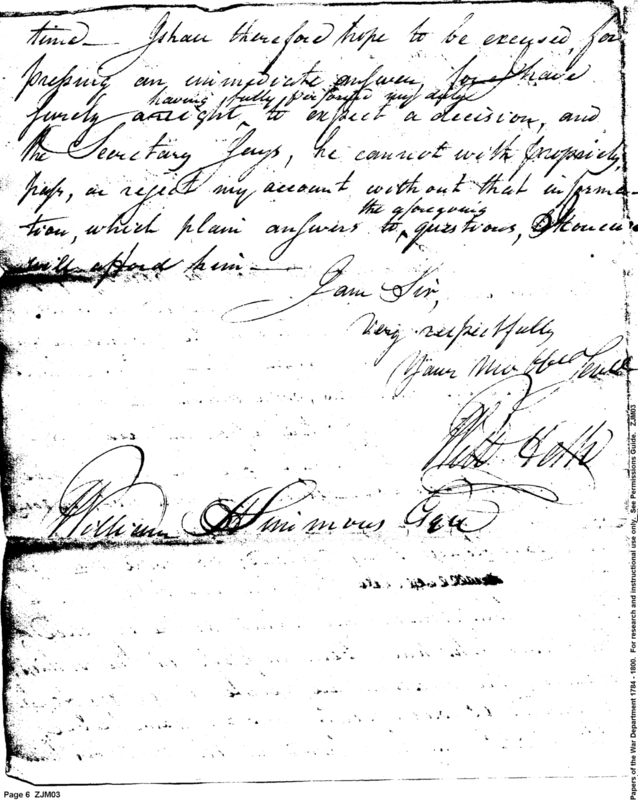 time — I shall therefore hope to be excused, for
pressing an immediate answer, for I have
having fully performed my duties
surely a right, to expect a decision, and
the Secretary says, he cannot with propriety,
pass, or reject my account without that informa-
the aforegoing
tion, which plain answers to questions,
will afford him —
I am Sir,
Very respectfully
Your Mo Obed Serv
William Simmons Esqr
Page 6 ZJM03
Papers of the War Department 1784 - 1800. For research and instructional use only. See Permissions Guide. ZJM03